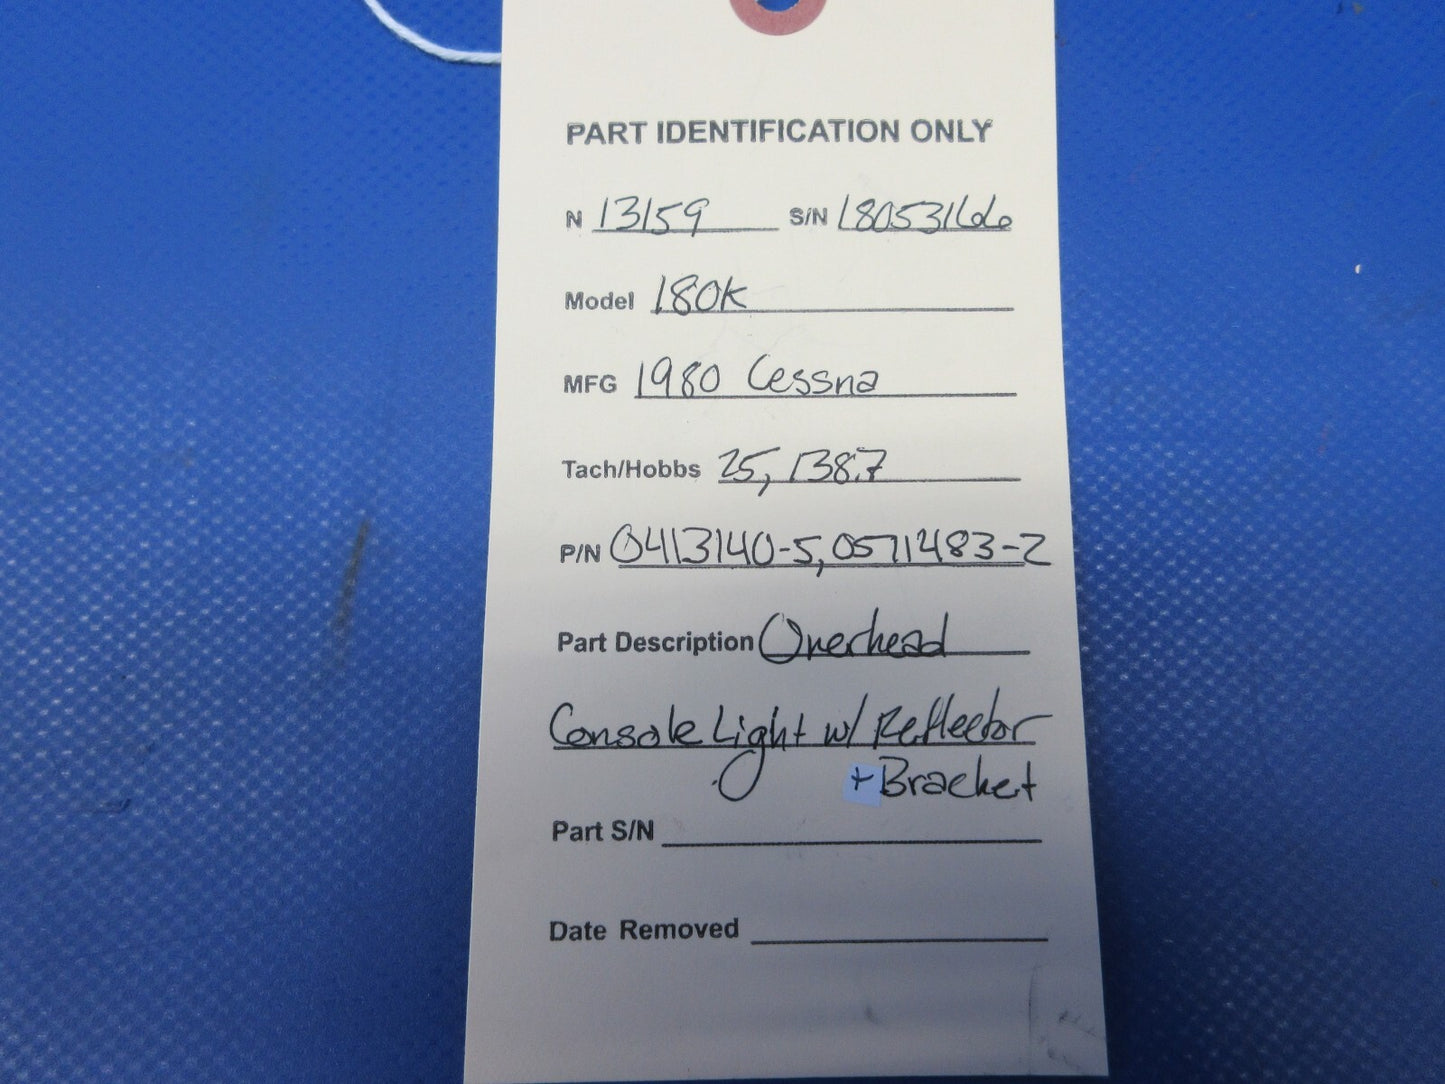 PART IDENTIFICATION ONLY
N 13159 S/N 18053166
Model 180K
MFG 1980 Cessna
Tach/Hobbs 25,138.7
P/N 0413140-5, 0571483-2
Part Description Overhead
Console Light w/ Reflector
+ Bracket
Part S/N
Date Removed